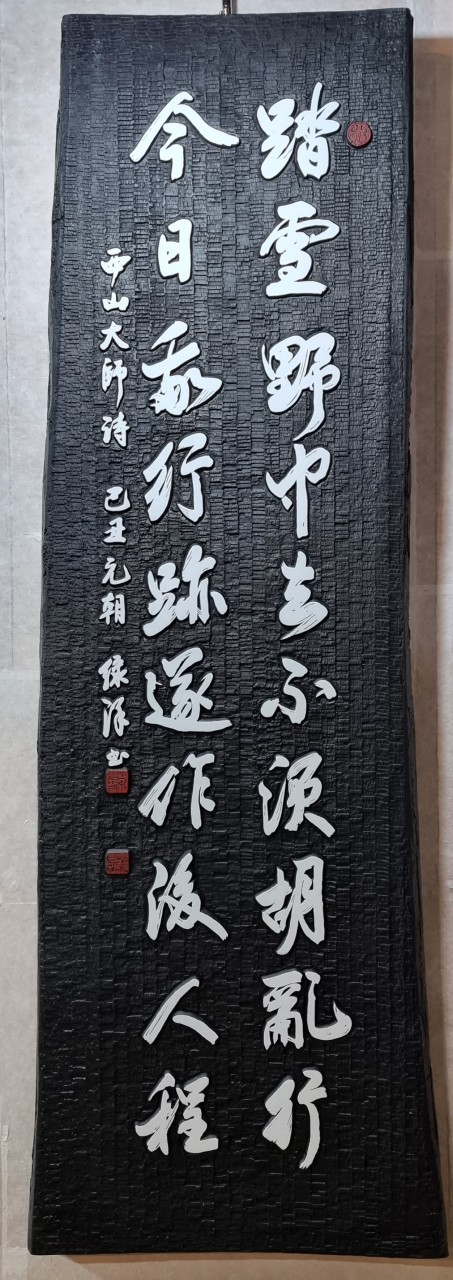 踏雪野中去不須胡亂行
今日我行跡遂作後人程
西山大師詩 己丑元朝 綠洋書